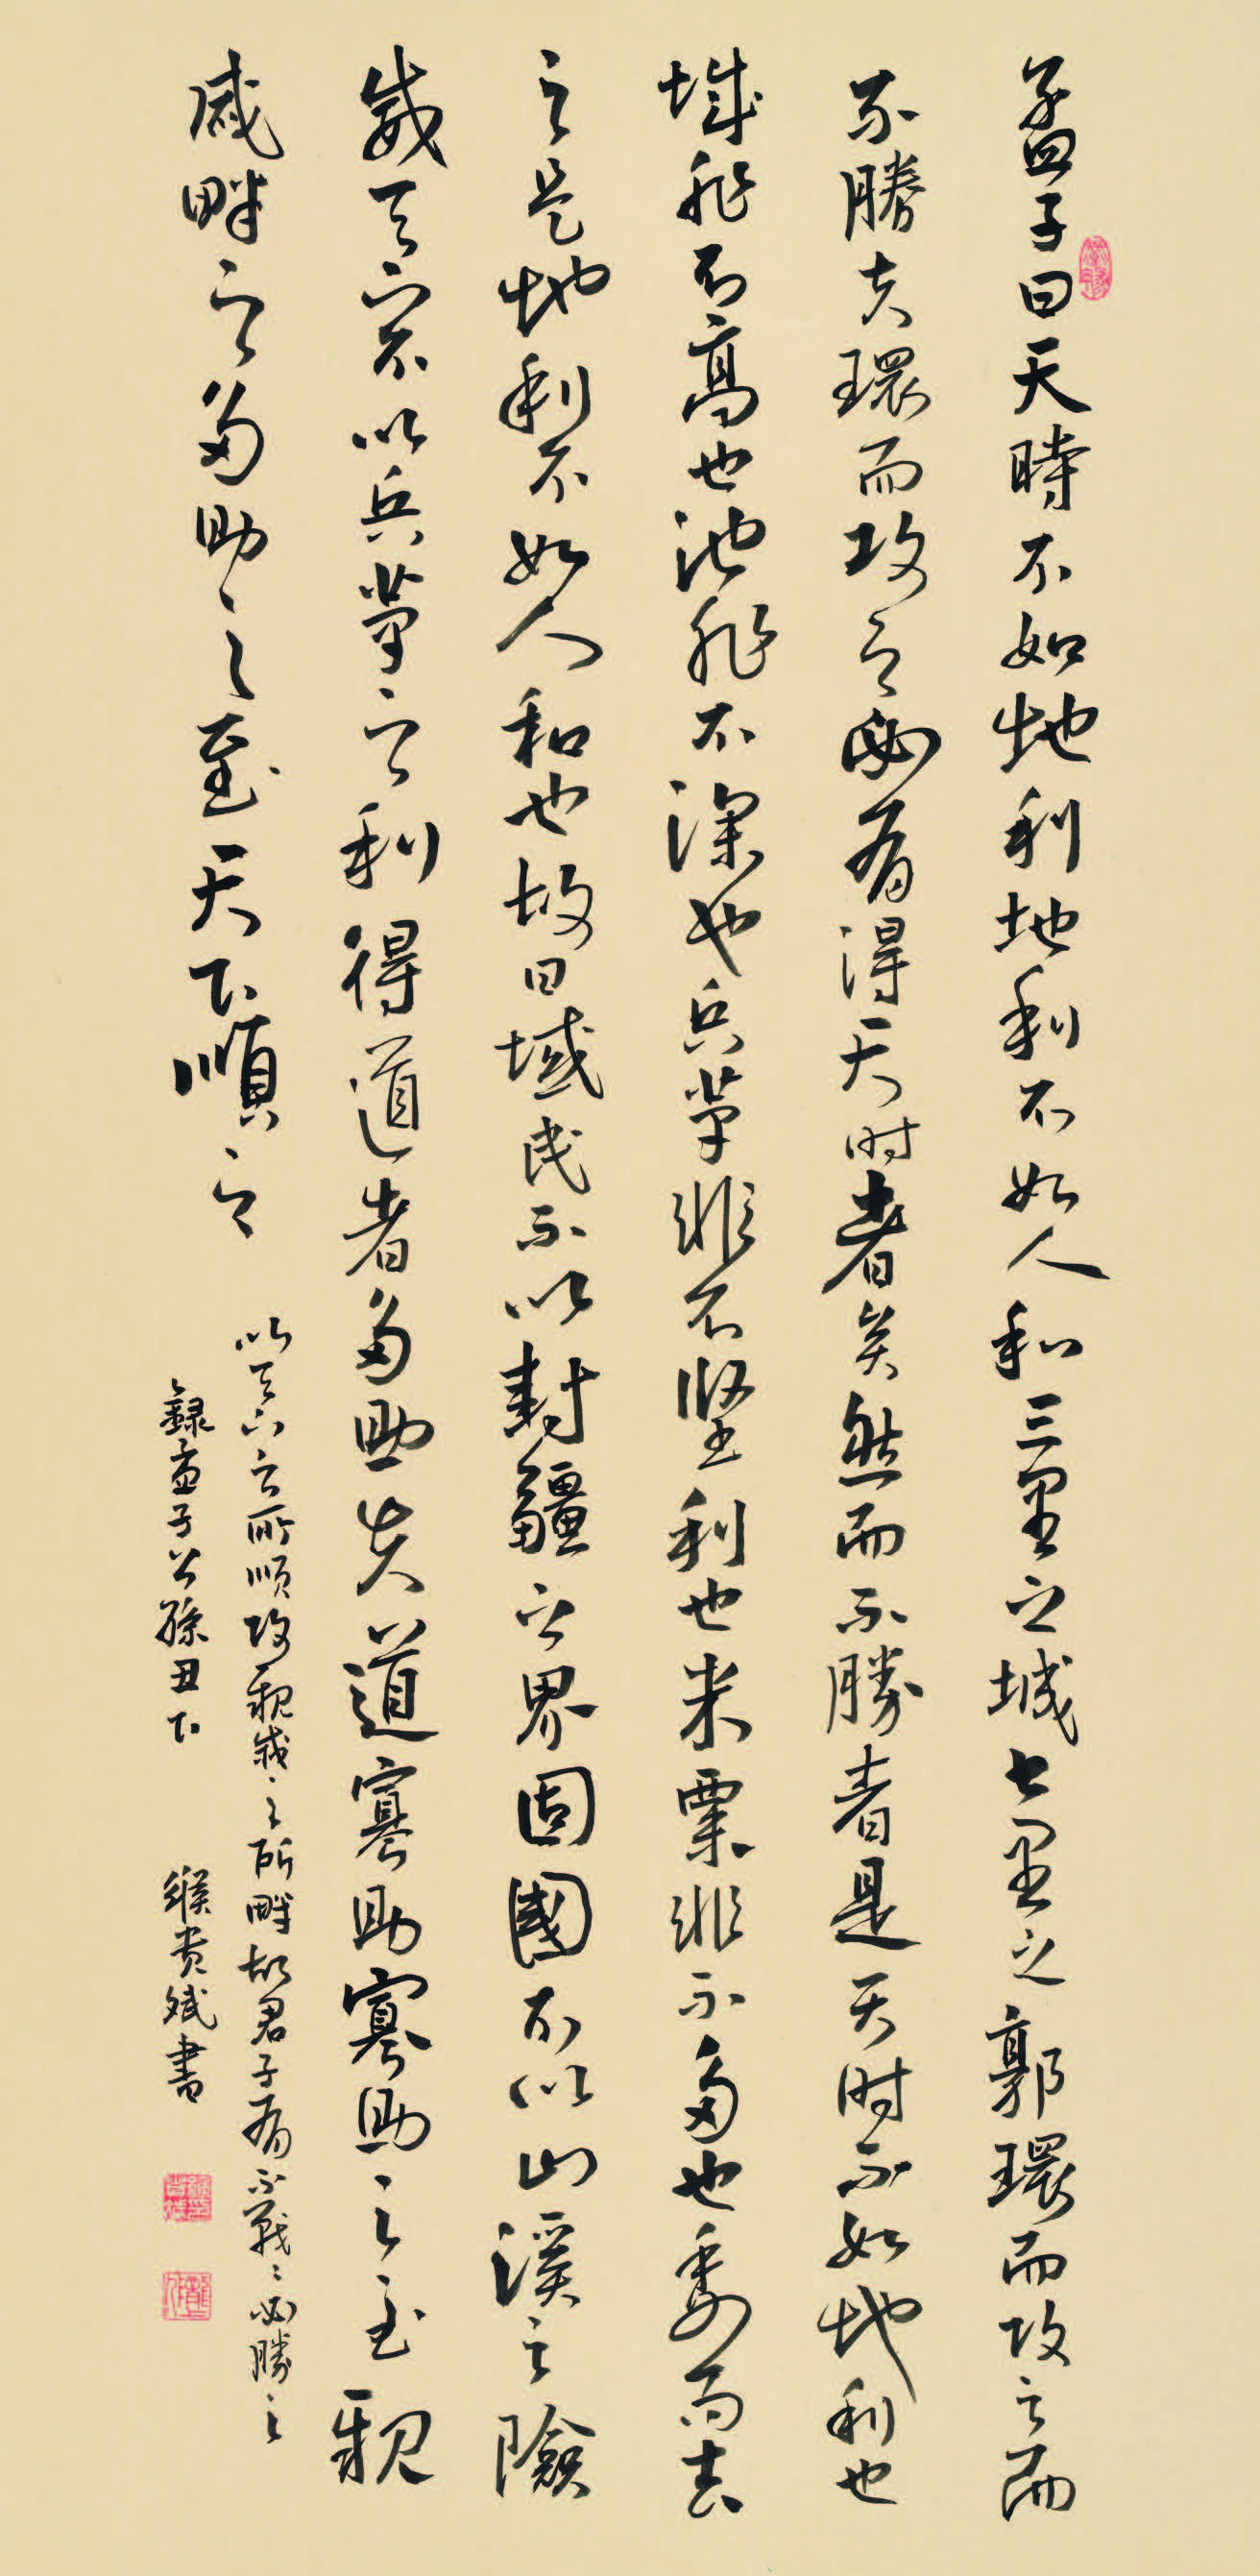 孟子曰天時不如地利地利不如人和三里之城七里之郭環而攻之而
不勝夫環而攻之必有得天时者矣然而不勝者是天时不如地利也
城非不高也池非不深也兵革非不堅利也米粟非不多也委而去
之是地利不如人和也故曰域民不以封疆之界固國不以山溪之險
威天下不以兵革之利得道者多助失道寡助寡助之至親
戚畔之多助之至天下順之
以天下之所順攻親戚之所畔故君子有不戰戰必勝之
錄孟子公孫丑下
緱贵斌書